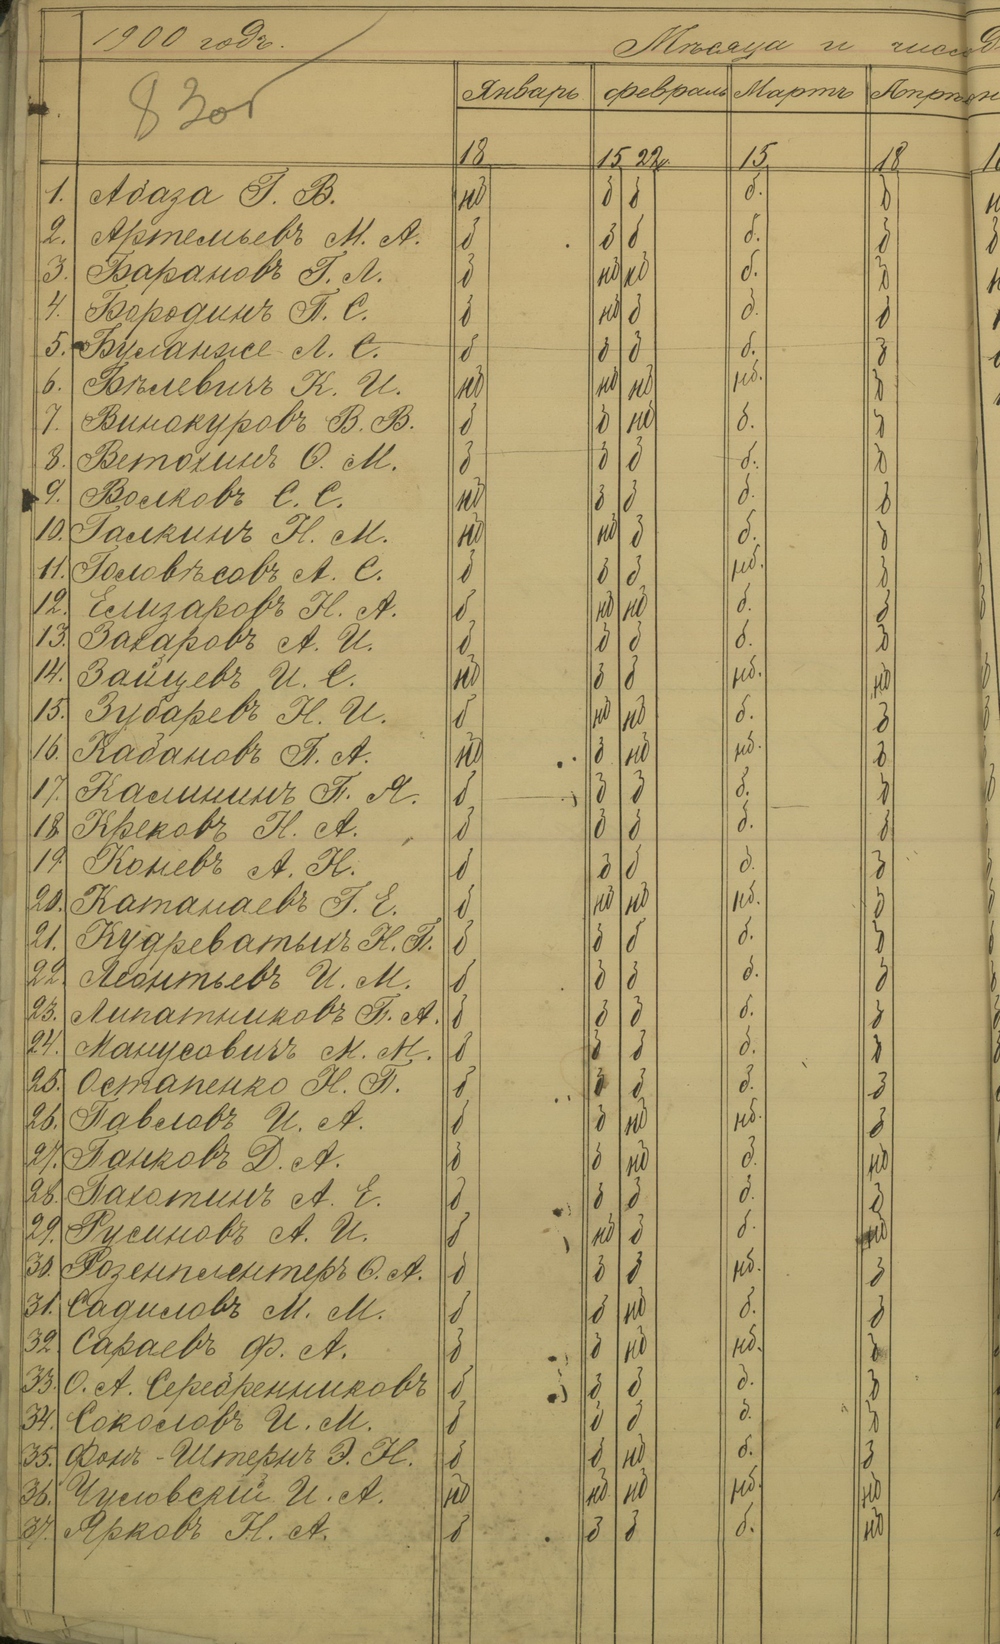 1900 годъ. Мѣсяца и число
83об
Январь февраль Мартъ
18 15 22 15 18
1. Абаза Г. В. нб б б б. б
2. Артемьевъ М. А. б б б б. б
3. Барановъ Г. Л. б нб нб б. б
4. Бородинъ П. С. б нб б б. б
5. Буланже Л. С. б б б б. б
6. Бѣлевичъ К. И. нб нб нб нб. б
7. Винокуровъ В. В. б б нб б. б
8. Ветохинъ О. М. б б б б. б
9. Волковъ С. С. нб б б б. б
10. Галкинъ Н. М. нб нб б б. б
11. Головѣсовъ А. С. б б б нб. б
12. Елизаровъ Н. А. б нб нб б. б
13. Захаровъ А. И. б б б б. б
14. Зайцевъ И. С. нб б б нб. нб
15. Зубаревъ Н. И. б нб нб б. б
16. Кабановъ П. А. нб б нб нб. б
17. Калининъ П. Я. б б б б. б
18 Крековъ Н. А. б б б б. б
19. Коневъ А. Н. б б б б. б
20. Катанаевъ Г. Е. б нб нб нб. б
21. Кудреватыхъ Н. П. б б б б. б
22. Леонтьевъ И. М. б б б б. б
23. Липатниковъ П. А. б б б б. б
24. Манусовичъ М. М. б б б б. б
25. Остапенко Н. П. б б б б. б
26. Павловъ И. А. б б нб нб. б
27. Панковъ Д. А. б б нб б. нб
28. Пахотинъ А. Е. б б б б. б
29. Русиновъ А. И. б нб б б. нб
30. Розенплентеръ О. А. б б б нб. б
31. Садиловъ М. М. б б нб б. б
32. Сараевъ Ф. А. б б нб нб. б
33. О. А. Серебренниковъ б б б б. б
34. Соколовъ И. М. б б б б. б
35. Фонъ-Штернъ Э. Н. б б нб б. б
36. Чусловскій И. А. нб нб нб нб. нб
37. Ярковъ Н. А. б б б б. нб